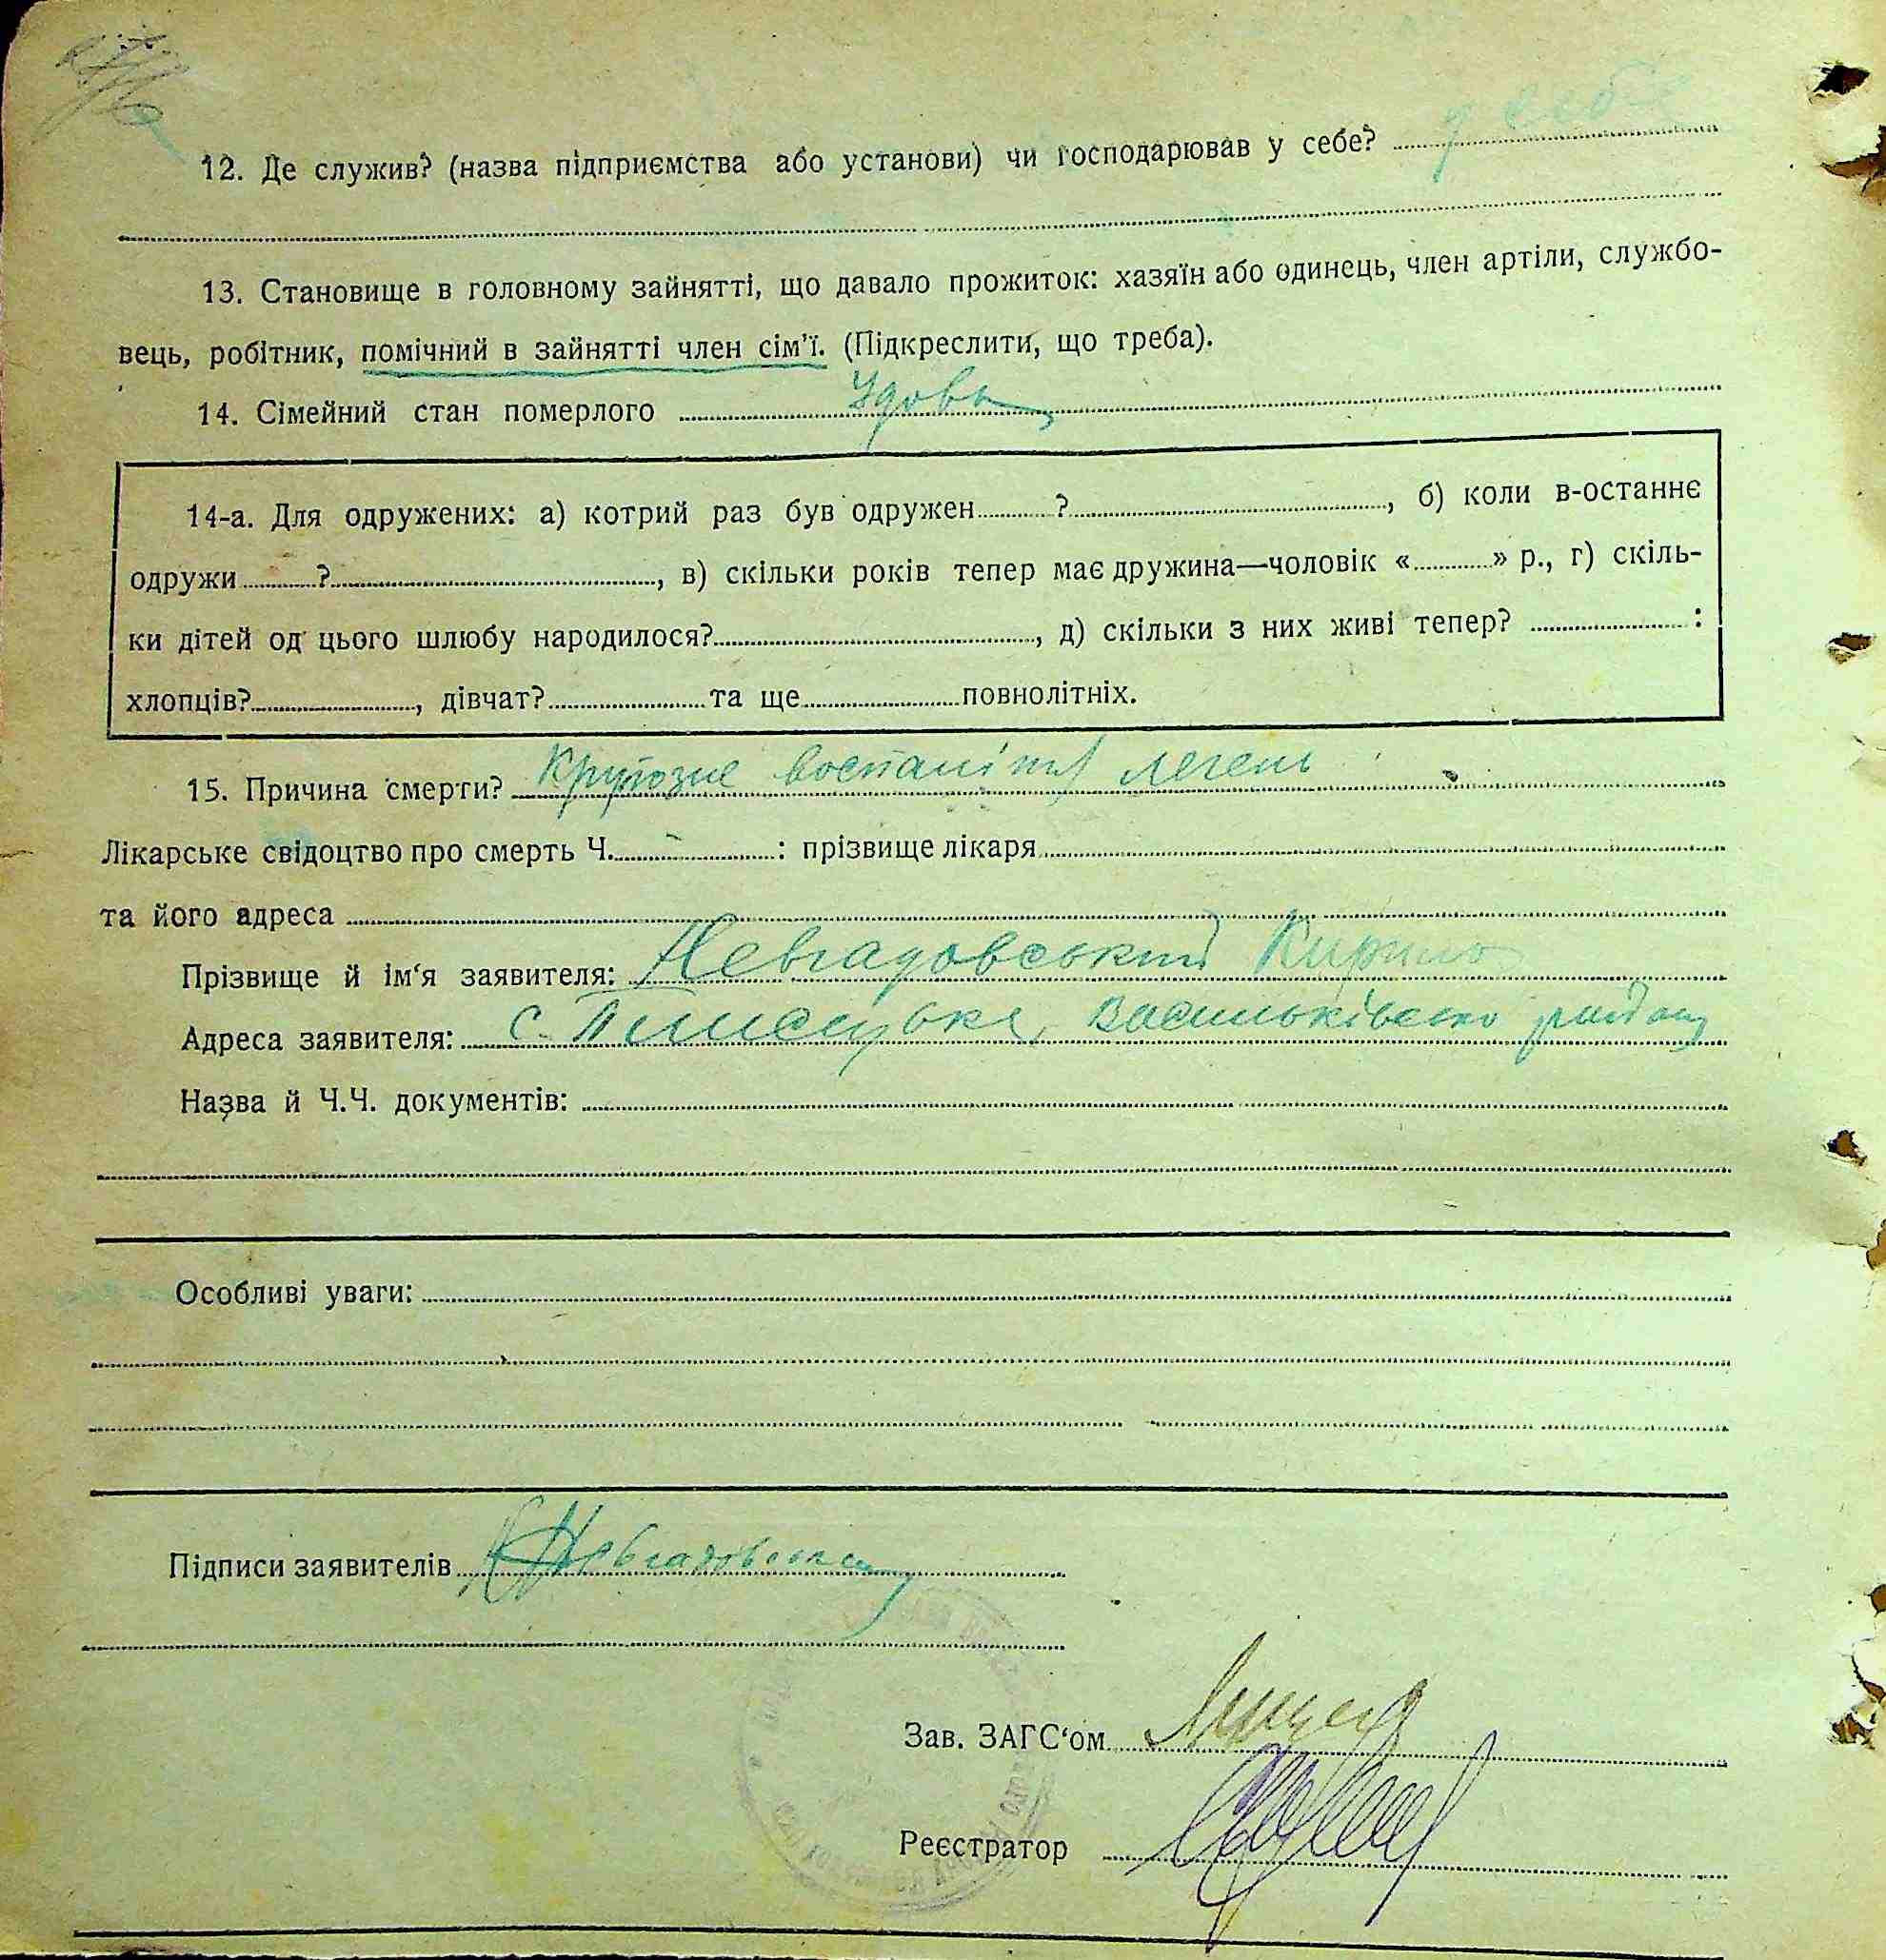 12. Де служив? (назва підприємства або установи) чи господарював у себе? у себе
13. Становище в головному зайнятті, що давало прожиток: хазяїн або одинець, член артіли, службо-
вець, робітник, помічний в зайнятті член сім'ї. (Підкреслити, що треба).
14. Сімейний стан померлого Удова
14-а. Для одружених: а) котрий раз був одружен ? , б) коли в-останнє
одружи ? , в) скільки років тепер має дружина—чоловік « » р., г) скіль-
ки дітей од цього шлюбу народилося? , д) скільки з них живі тепер? :
хлопців? , дівчат? та ще повнолітніх.
15. Причина смерти? Крупозне легень
Лікарське свідоцтво про смерть Ч. : прізвище лікаря
та його адреса
Прізвище й ім'я заявителя: Невгадовський Кирило
Адреса заявителя: с. Васильківсько району
Назва й Ч.Ч. документів:
Особливі уваги:
Підписи заявителів
Зав. ЗАГС'ом
Реєстратор